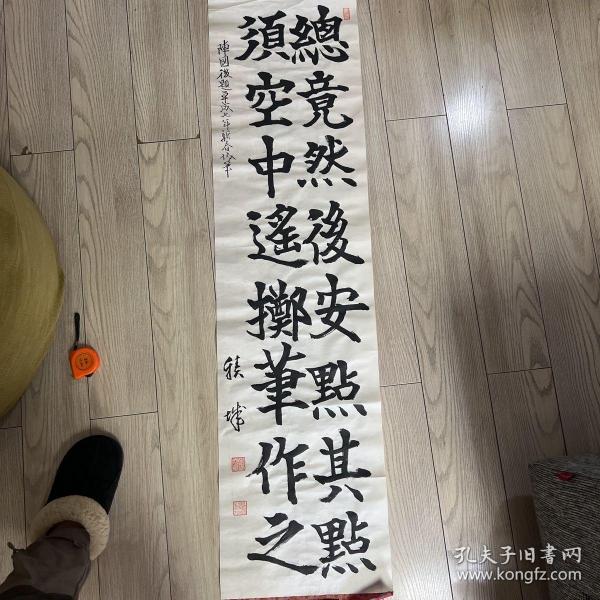 總竟然後安點其點
須空中遙擲筆作之
積城
孔夫子旧書网
www.kongfz.com